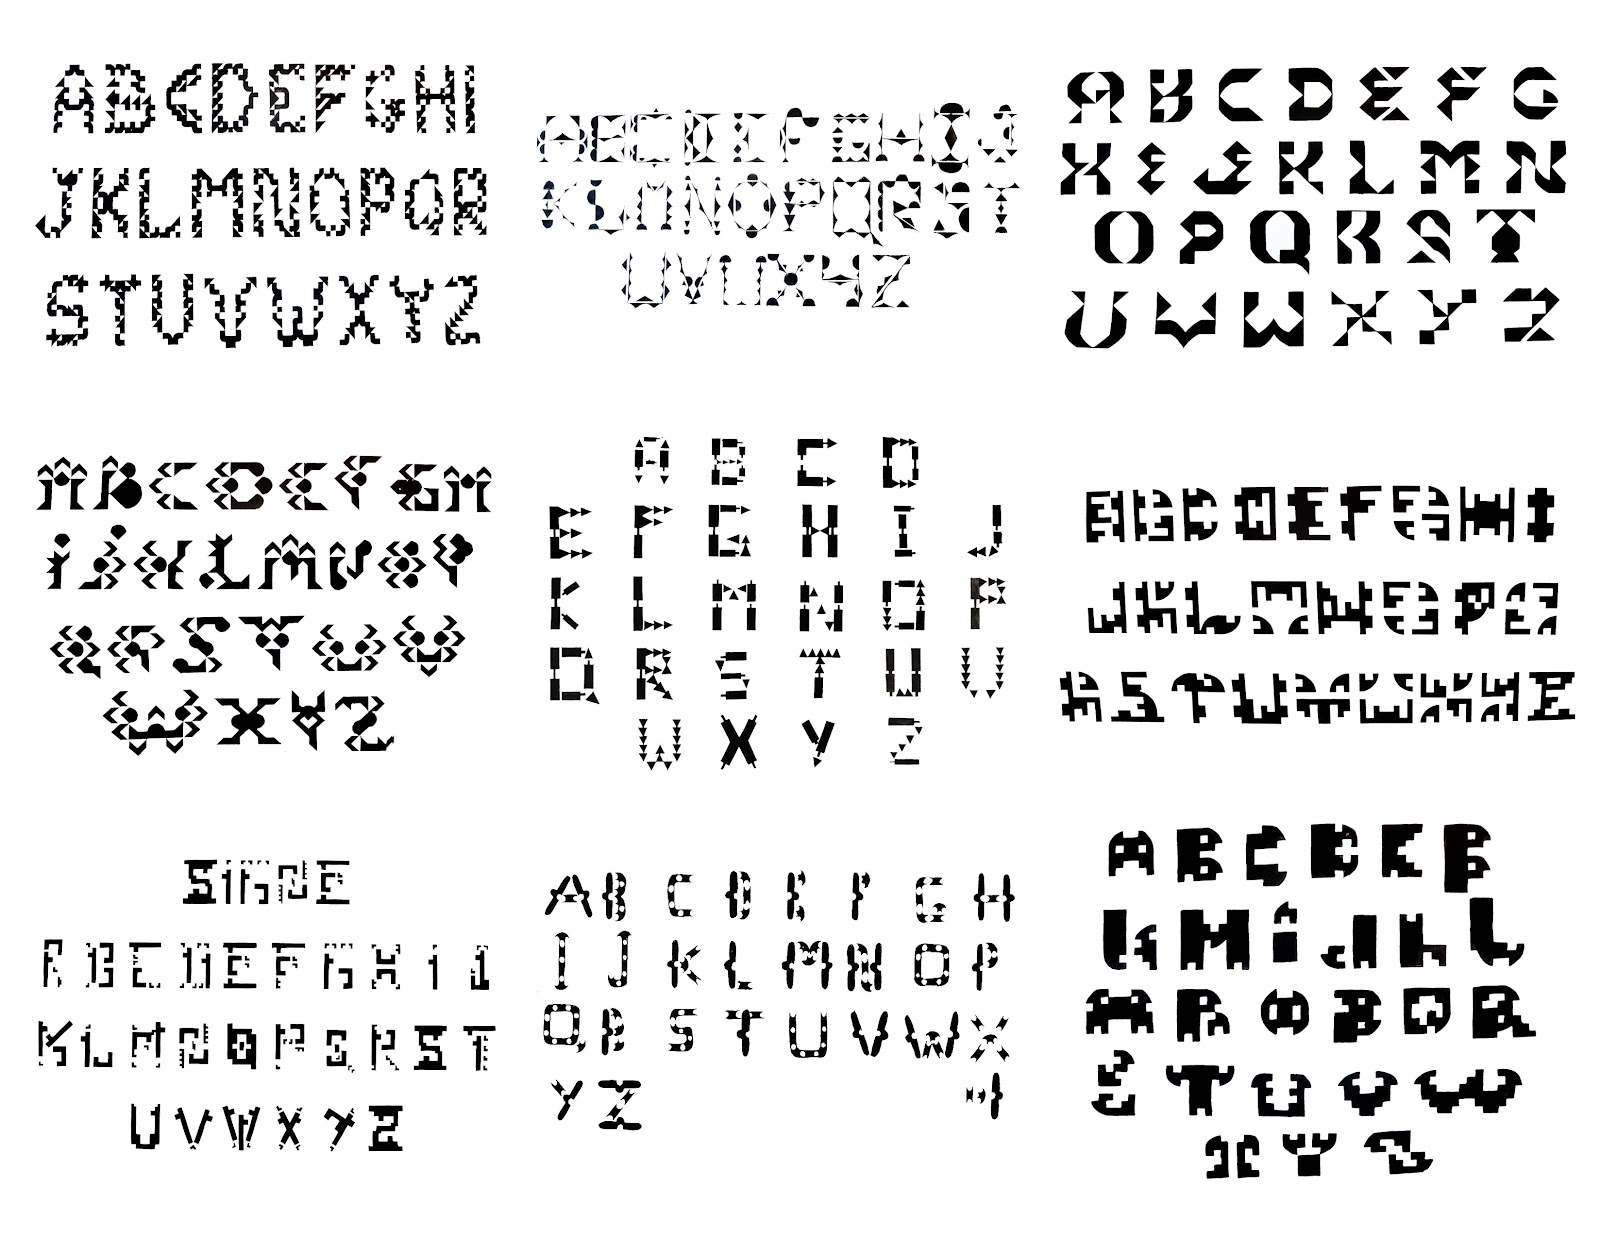 ABCDEFGHI
JKLMNOPQR
STUVWXYZ
ABCDEFGHIJ
KLMNOPQRST
UVWXYZ
ABCDEFG
HIJKLMN
OPQRST
UVWXYZ
ABCDEFGH
IJKLMNOP
QRSTUV
WXYZ
A B C D
E F G H I J
K L M N O P
Q R S T U V
W X Y Z
ABCDEFGHI
JKLMNOPQ
RSTUVWXYZ
ABCDEFGHIJ
KLMNOPQRST
UVWXYZ
AB C D E F G H
I J K L M N O P
Q R S T U V W X
Y Z
A B C D E F
G H i J K L
M N O P Q R
S T U V W
X Y Z